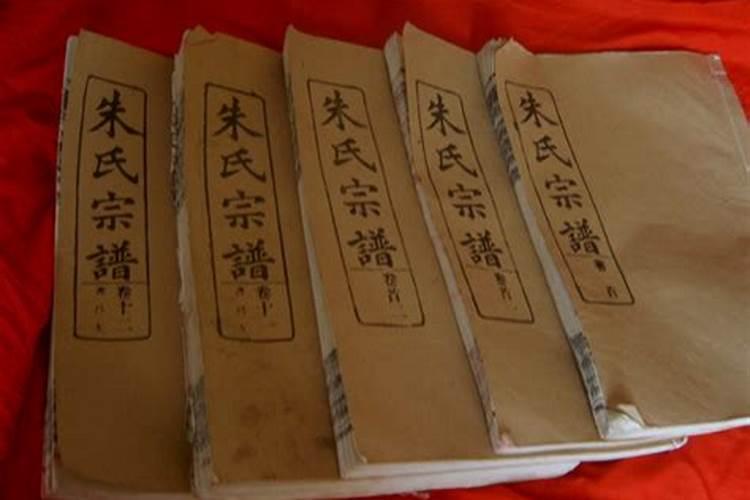 朱氏宗譜
卷十二
朱氏宗譜
卷十一
朱氏宗譜
卷首二
朱氏宗譜
卷首一
朱氏宗譜
卷首